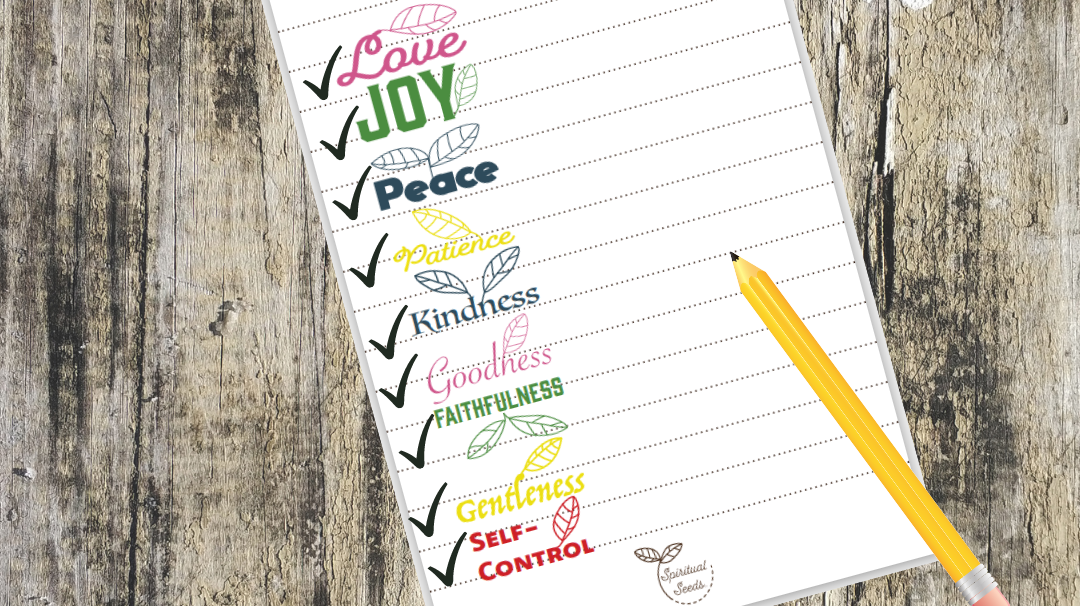 Love
JOY
Peace
Patience
Kindness
Goodness
FAITHFULNESS
Gentleness
SELF-
CONTROL
Spiritual
Seeds